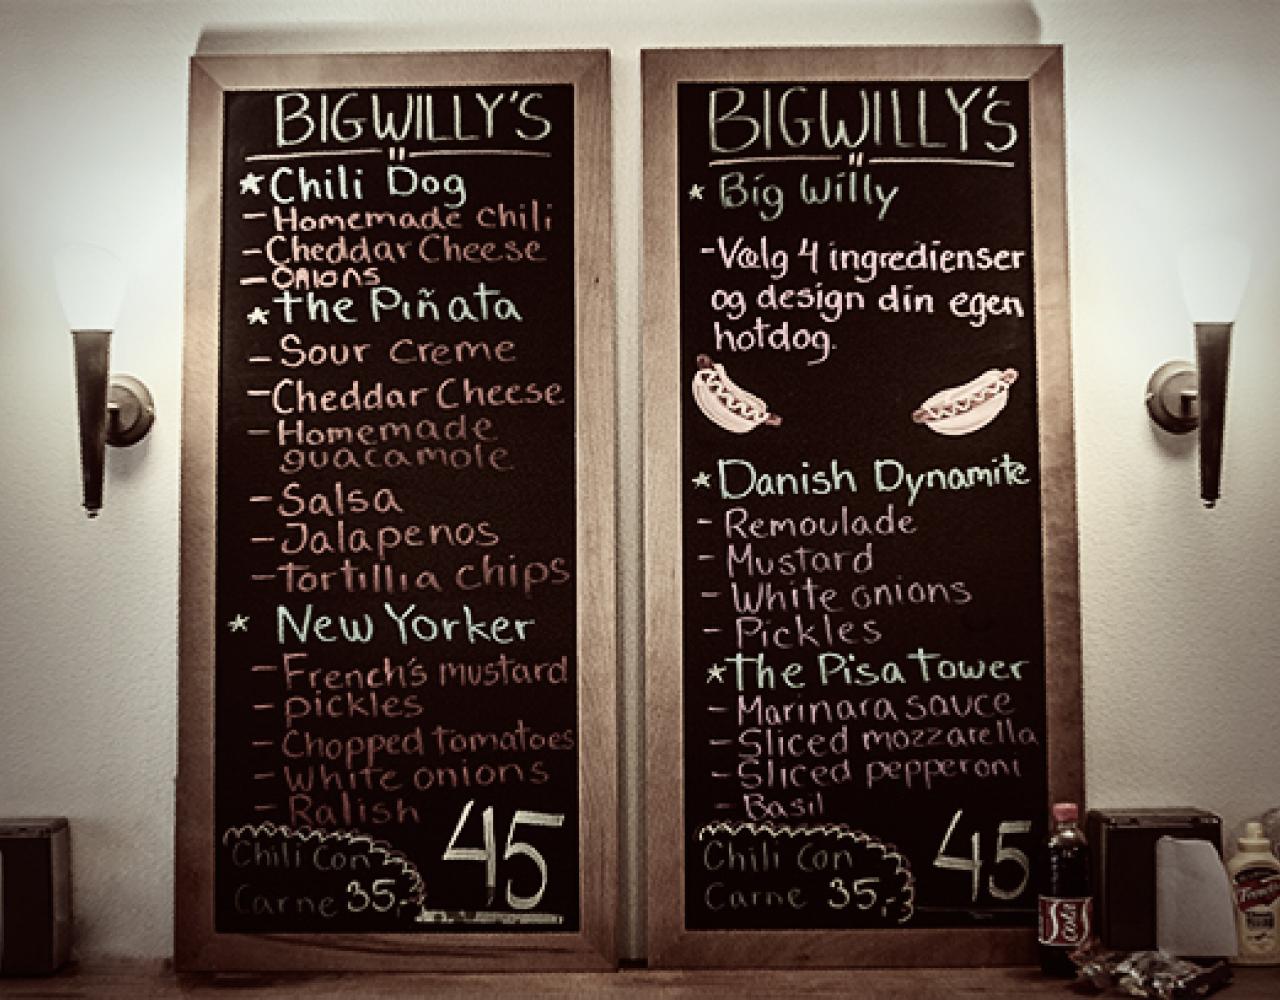 BIGWILLY'S
* Chili Dog
- Homemade chili
- Cheddar Cheese
- Onions
* the Piñata
- Sour creme
- Cheddar Cheese
- Homemade
guacamole
- Salsa
- Jalapenos
- Tortillia chips
* New Yorker
- French's mustard
- pickles
- Chopped tomatoes
- White onions
- Ralish
Chili Con
Carne 35,-
45
BIGWILLY'S
* Big Willy
- Vælg 4 ingredienser
og design din egen
hotdog.
* Danish Dynamite
- Remoulade
- Mustard
- White onions
- Pickles
* The Pisa Tower
- Marinara sauce
- Sliced mozzarella
- Sliced pepperoni
- Basil
Chili Con
Carne 35,-
45